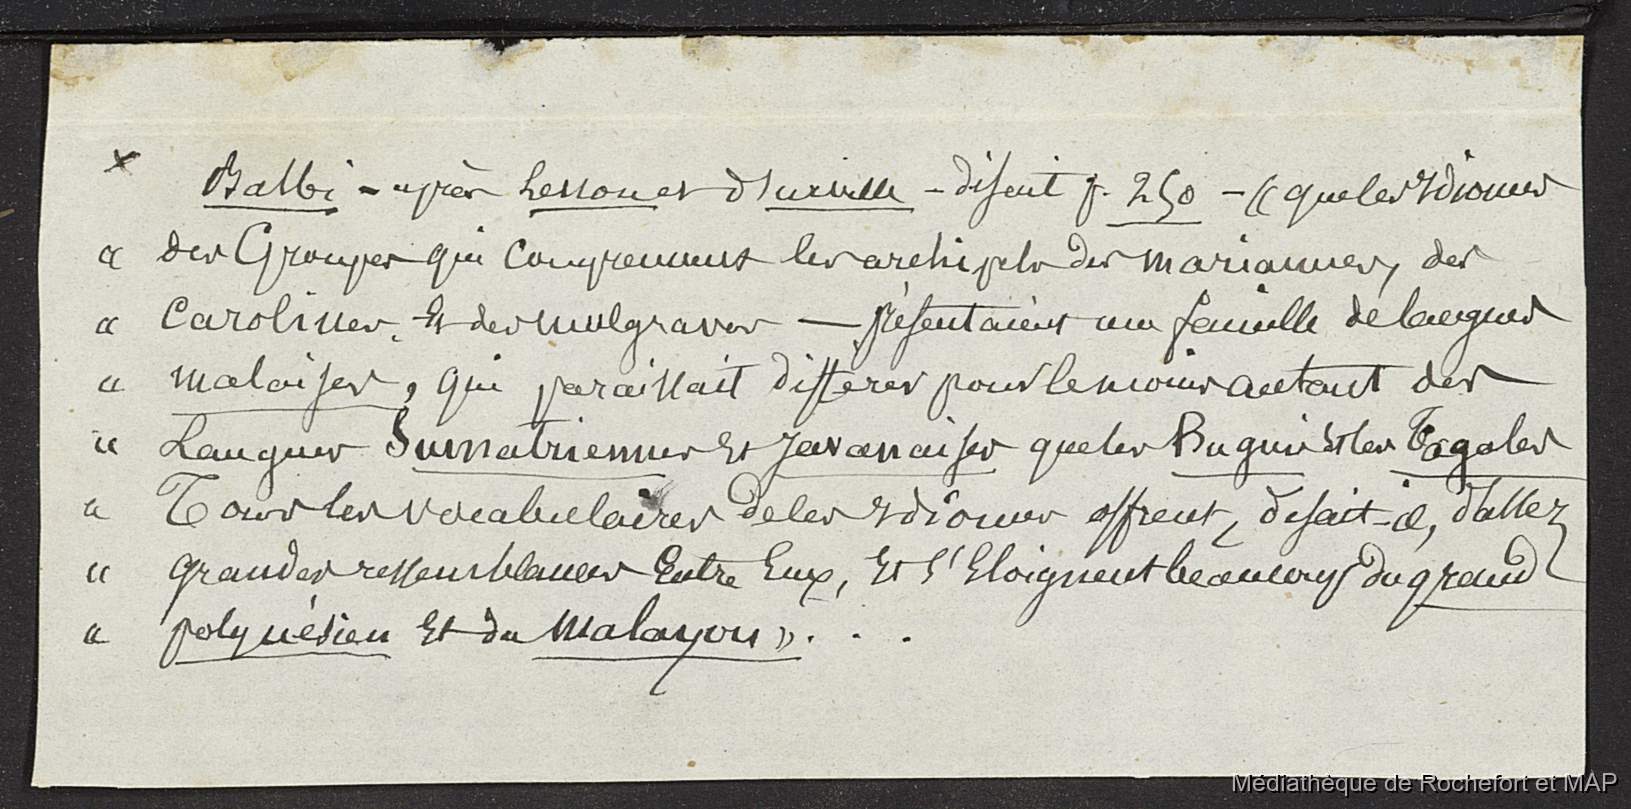 x Balbi - après Lesson et d'Urville - disait p. 250 - « que les Idiomes
« des Groupes qui comprennent les archipels des mariannes, des
« Carolines Et des mulgraves — présentaient une famille de langues
« malaises, qui paraissait différer pour le moins autant des
« Langues Sumatriennes Et Javanaises que les Buguis Et les Tagales
« Tous les vocabulaires de ces Idiômes offrent, disait-il, d'assez
« grandes ressemblances Entre Eux, Et s'Eloignent beaucoup du grand
« polynésien Et du Malayou » . . .
Médiathèque de Rochefort et MAP